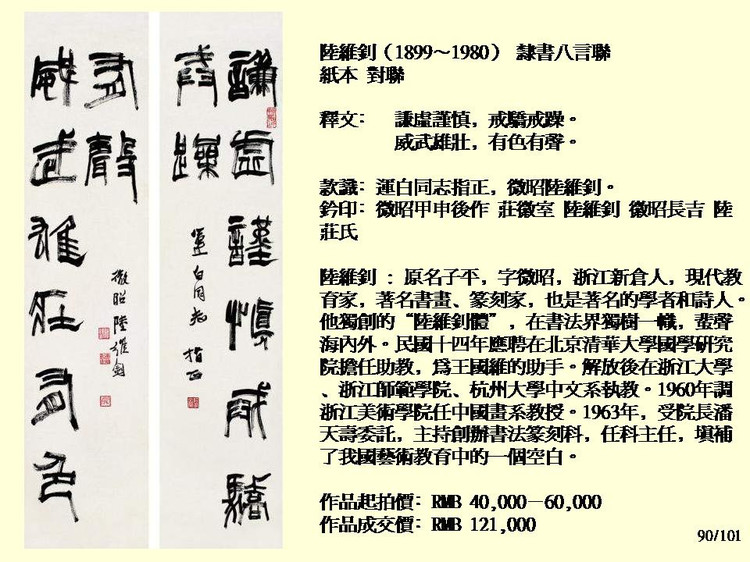 謙虛謹慎戒驕
戒躁
運白同志指正
威武雄壯有色
有聲
微昭陸維釗
陸維釗（1899～1980） 隸書八言聯
紙本 對聯
釋文： 謙虛謹慎，戒驕戒躁。
威武雄壯，有色有聲。
款識：運白同志指正，微昭陸維釗。
鈐印：微昭甲申後作 莊徽室 陸維釗 微昭長吉 陸
莊氏
陸維釗 ：原名子平，字微昭，浙江新倉人，現代教
育家，著名書畫、篆刻家，也是著名的學者和詩人。
他獨創的“陸維釗體”，在書法界獨樹一幟，蜚聲
海內外。民國十四年應聘在北京清華大學國學研究
院擔任助教，爲王國維的助手。解放後在浙江大學
、浙江師範學院、杭州大學中文系執教。1960年調
浙江美術學院任中國畫系教授。1963年，受院長潘
天壽委託，主持創辦書法篆刻科，任科主任，填補
了我國藝術教育中的一個空白。
作品起拍價：RMB 40,000－60,000
作品成交價：RMB 121,000
90/101